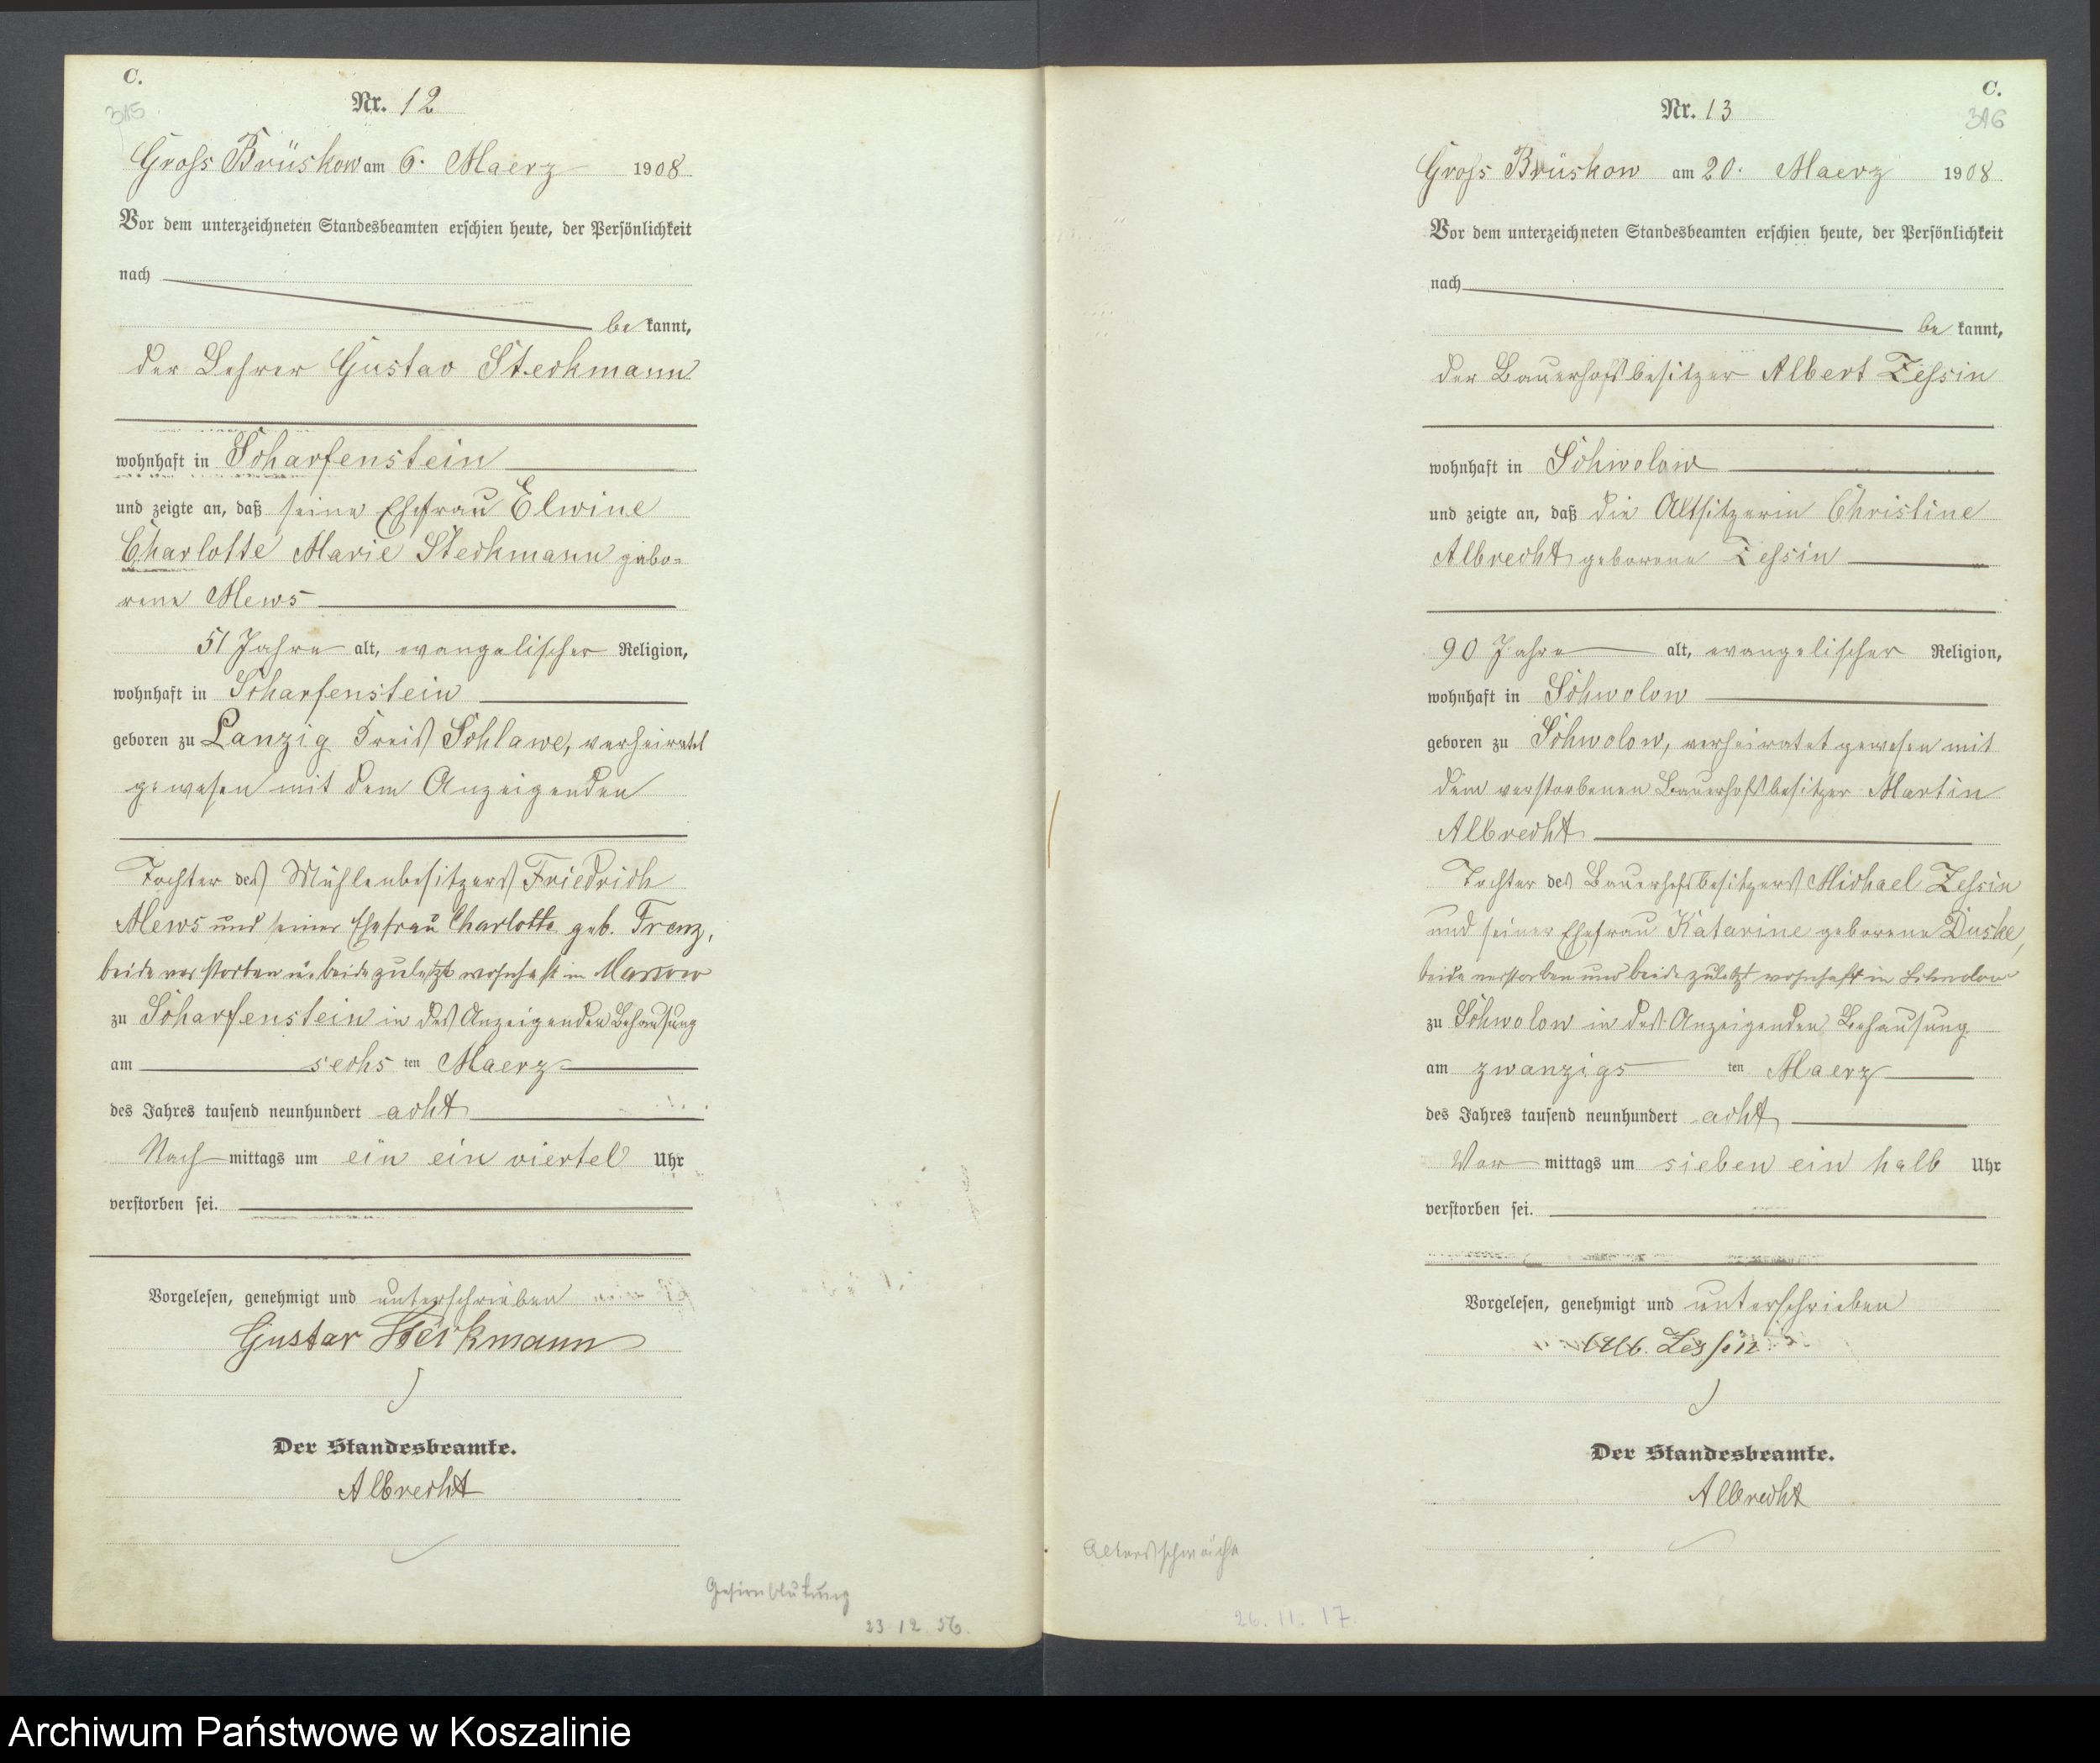 C.
315
Nr. 12
Gross Brüskow am 6. Maerz 1908
Vor dem unterzeichneten Standesbeamten erschien heute, der Persönlichkeit
nach
be kannt,
der Lehrer Gustav Steckmann
wohnhaft in Scharfenstein
und zeigte an, daß seine Ehefrau Elwine
Charlotte Marie Steckmann gebo=
rene Mews
51 Jahre alt, evangelischer Religion,
wohnhaft in Scharfenstein
geboren zu Lanzig Kreis Schlawe, verheiratet
gewesen mit dem Anzeigenden
Tochter des Mühlenbesitzers Friedrich
Mews und seiner Ehefrau Charlotte geb. Franz,
beide verstorben u. beide zuletzt wohnhaft in Marsow
zu Scharfenstein in des Anzeigenden Behausung
am sechs ten Maerz
des Jahres tausend neunhundert acht
Nach mittags um ein ein viertel Uhr
verstorben sei.
Vorgelesen, genehmigt und unterschrieben
Gustav Steckmann
Der Standesbeamte.
Albrecht
Gehirnblutung
23 12. 56.
C.
316
Nr. 13
Gross Brüskow am 20. Maerz 1908
Vor dem unterzeichneten Standesbeamten erschien heute, der Persönlichkeit
nach
be kannt,
der Bauerhofsbesitzer Albert Zessin
wohnhaft in Schwolow
und zeigte an, daß die Altsitzerin Christine
Albrecht geborene Zessin
90 Jahre alt, evangelischer Religion,
wohnhaft in Schwolow
geboren zu Schwolow, verheiratet gewesen mit
dem verstorbenen Bauerhofsbesitzer Martin
Albrecht
Tochter des Bauerhofsbesitzers Michael Zessin
und seiner Ehefrau Katarine geborene Duske,
beide verstorben und beide zuletzt wohnhaft in Schwolow
zu Schwolow in des Anzeigenden Behausung
am zwanzigs ten Maerz
des Jahres tausend neunhundert acht
Vor mittags um sieben ein halb Uhr
verstorben sei.
Vorgelesen, genehmigt und unterschrieben
Alb. Zessin
Der Standesbeamte.
Albrecht
Altersschwäche
26. 11. 17.
Archiwum Państwowe w Koszalinie